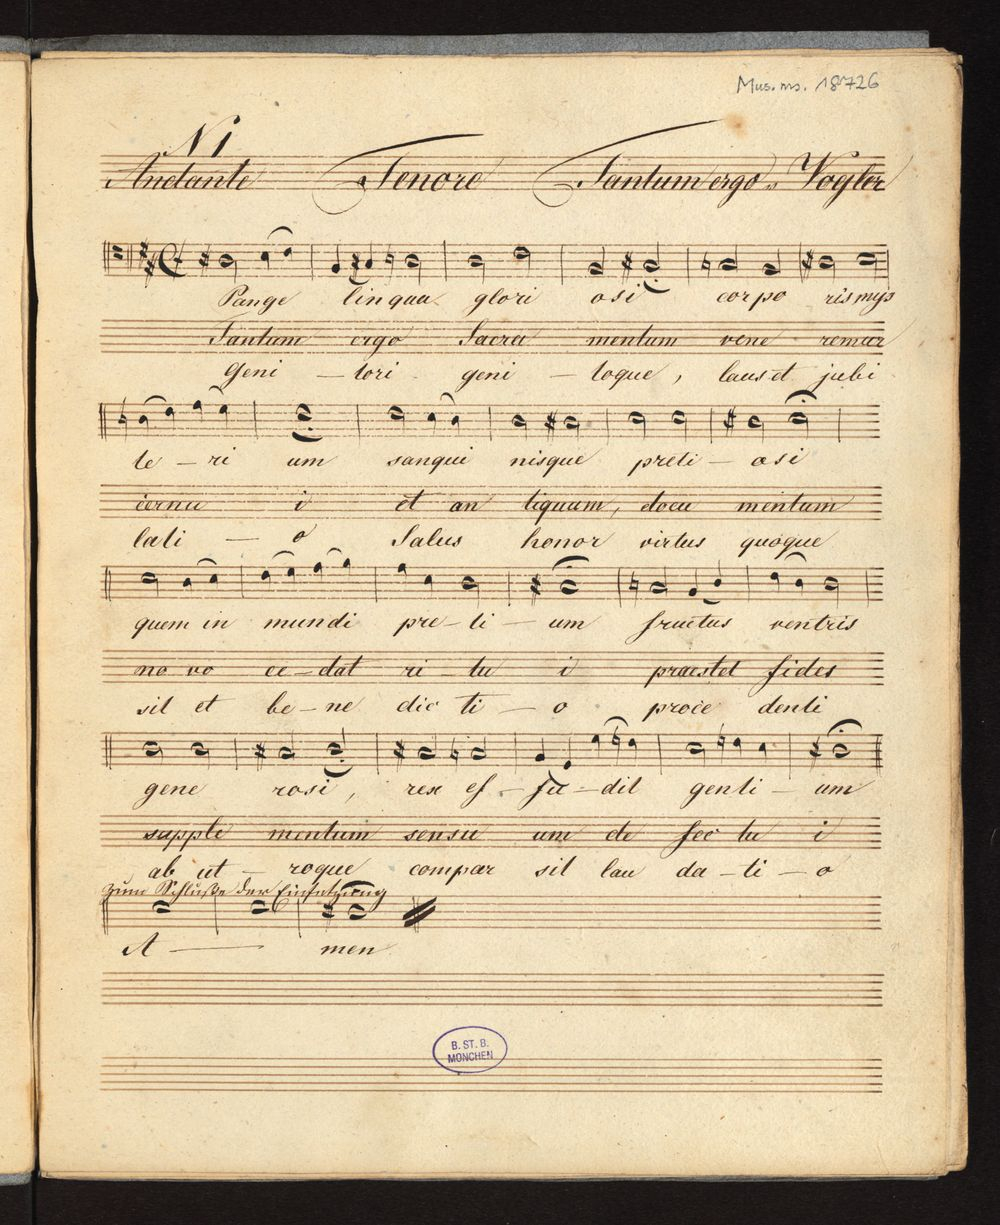 Mus. ms. 18726
N 1
Andante Tenore Tantum ergo v Vogler
Pange lingua glori osi corpo ris mys
Tantum ergo Sacra mentum vene remur
Geni – tori geni – toque, laus et jubi
te – ri um sangui nisque preti – osi
cernu i et an tiquum, docu mentum
lati – o Salus honor virtus quoque
quem in mundi pre – ti – um fructus ventris
no vo ce – dat ri – tu i praestet fides
sit et be – ne dic ti – o proce denti
gene rosi, rex ef – fu – dit genti – um
supple mentum sensu um de fec tu i
ab ut – roque compar sit lau da – ti – o
zum Schluße der Einsetzung
A — men
B. ST. B.
MÜNCHEN